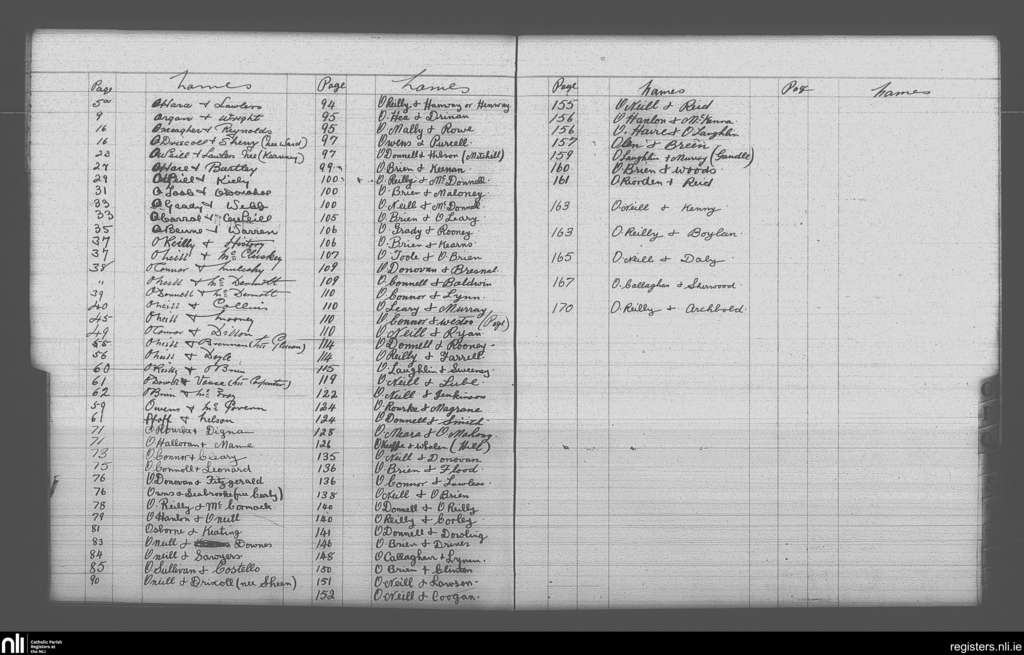 Page Names
5a O'Hara & Lawlers
9 Organ & Wright
16 Omeagher & Reynolds
16 O'Driscoll & Sherry (nee Ward)
23 O'Neill & Lawlor nee (Kearney)
27 O'Hare & Bartley
29 O'Neill & Kiely
31 O'Toole & O'Donohoe
33 O'Grady & Webb
33
35 O'Beirne & Warren
37 O'Reilly &
37 O'neill & McCluskey
38 O'Connor & mulcahy
" O'neill & McDermott
39 O'Donnell & McDermott
40 O'neill & Collins
45 O'neill & mooney
49 O'Connor & Dillon
55 O'neill &
56 O'neill & Doyle
60 O'Reilly & O'Brien
61 O'Dowd & Vance (
62 O'Brien & McEvoy
59 Owens & McGovern
61 & nelson
71 O'Rourke & Dignan
71 O'Halloran & Mame
73 O'Connor & Cleary
75 O'Connell & Leonard
76 O'Donovan & Fitzgerald
76 Owens & Seabrooke (nee Carly)
78 O'Reilly & McCormack
79 O'Hanlon & O'neill
81 Osborne & Keating
83 O'neill & Downes
84 O'neill & Sawyers
85 O'Sullivan & Costello
90 O'neill & Driscoll (nee Sheen)
Page Names
94 O'Reilly & Hanway or Henway
95 O'Hea & Drinan
95 O'Mally & Rowe
97 Owens & Purcell
97 O'Donnell & Hilson (Mitchell)
99 O'Brien & Keenan
100 O'Reilly & McDonnell
100 O'Brien & Maloney
100 O'Neill & McDonnell
105 O'Brien & O'Leary
106 O'Grady & Rooney
106 O'Brien & Kearns
107 O'Toole & O'Brien
109 O'Donovan & Bresnal
109 O'Connell & Baldwin
110 O'Connor & Lynn
110 O'Leary & Murray
110 O'Connor & Weston (Page)
110 O'Neill & Ryan
114 O'Donnell & Rooney
114 O'Reilly & Farrell
115 O'Laughlin & Sweeney
119 O'Neill & Lube
122 O'Neill & Jenkinson
124 O'Rourke & Magrane
124 O'Donnell & Smith
128 O'Meara & O'Mahony
126 O'Keeffe & Whelan (Hill)
135 O'Neill & Donovan
136 O'Brien & Flood
136 O'Connor & Lawless
138 O'Neill & O'Brien
140 O'Donnell & O'Reilly
140 O'Reilly & Corley
141 O'Donnell & Dowling
146 O'Brien & Drines
148 O'Callaghan & Lynam
150 O'Brien & Clinton
151 O'Neill & Lawson
152 O'Neill & Coogan
Page Names
155 O'Neill & Reid
156 O'Hanlon & McKenna
156 O'Hare & O'Laughlin
157 Olen & Breen
159 O'Laughlin & Murray (Gandle)
160 O'Brien & Woods
161 O'Riorden & Reid
163 O'Neill & Kenny
163 O'Reilly & Boylan
165 O'Neill & Daly
167 O'Callaghan & Sherwood
170 O'Reilly & Archbold
Page Names
nli
Catholic Parish
Registers at
the NLI
registers.nli.ie